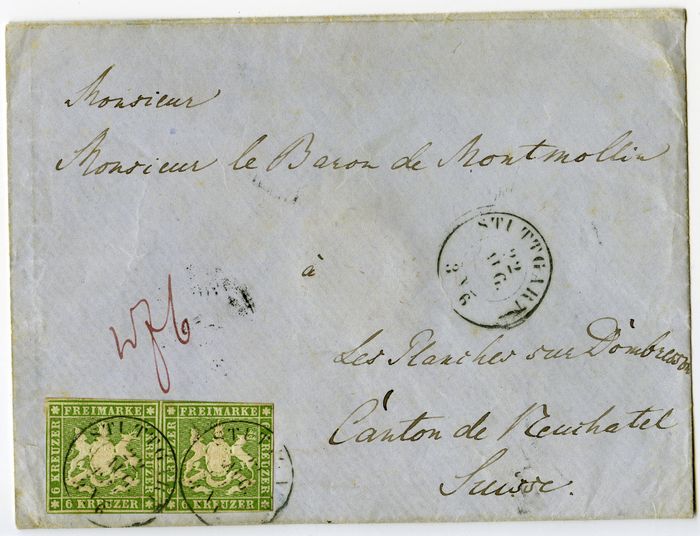 Monsieur
Monsieur le Baron de Montmollin
STUTTGART
22
AUG
à
wf6
Les Planches sur Dombresson
Canton de Neuchatel
Suisse.
FREIMARKE FREIMARKE
6 KREUZER KREUZER 6 KREUZER KREUZER
6 KREUZER 6 KREUZER
STUTTGART